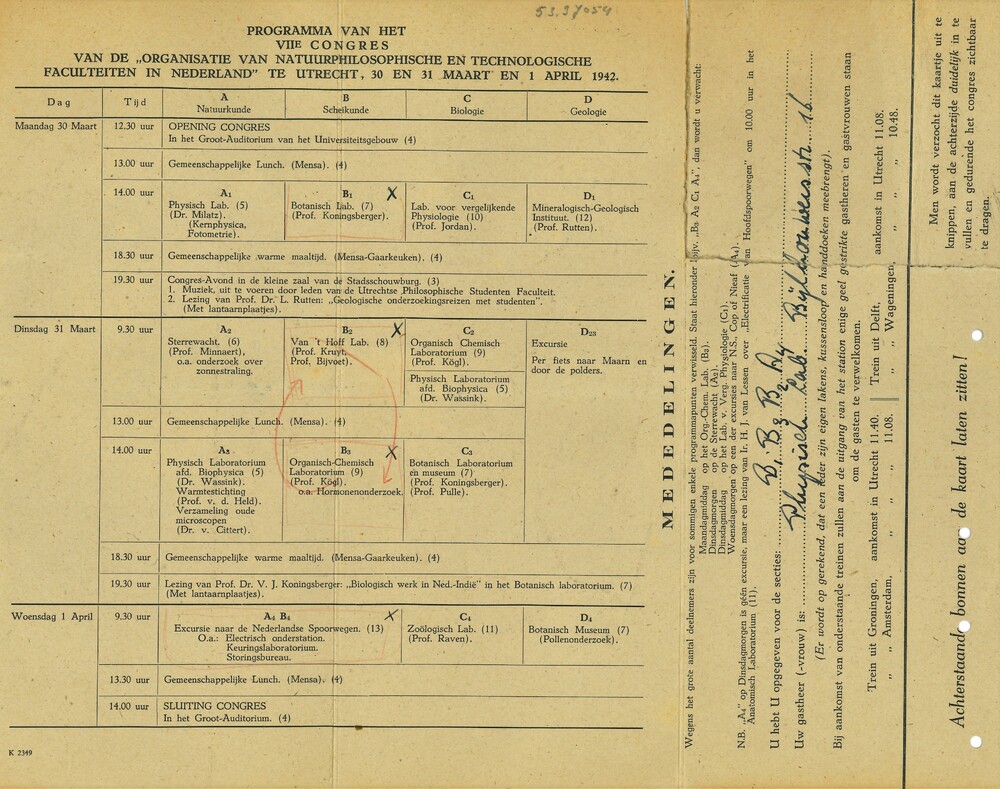 53.37054
PROGRAMMA VAN HET
VIIE CONGRES
VAN DE „ORGANISATIE VAN NATUURPHILOSOPHISCHE EN TECHNOLOGISCHE
FACULTEITEN IN NEDERLAND" TE UTRECHT, 30 EN 31 MAART EN 1 APRIL 1942.
Dag Tijd A Natuurkunde B Scheikunde C Biologie D Geologie
Maandag 30 Maart 12.30 uur OPENING CONGRES
In het Groot-Auditorium van het Universiteitsgebouw (4)
13.00 uur Gemeenschappelijke Lunch. (Mensa). (4)
14.00 uur
A1
Physisch Lab. (5)
(Dr. Milatz).
(Kernphysica,
Fotometrie).
B1 X
Botanisch Lab. (7)
(Prof. Koningsberger).
C1
Lab. voor vergelijkende
Physiologie (10)
(Prof. Jordan).
D1
Mineralogisch-Geologisch
Instituut. (12)
(Prof. Rutten).
18.30 uur Gemeenschappelijke warme maaltijd. (Mensa-Gaarkeuken). (4)
19.30 uur Congres-Avond in de kleine zaal van de Stadsschouwburg. (3)
1. Muziek, uit te voeren door leden van de Utrechtse Philosophische Studenten Faculteit.
2. Lezing van Prof. Dr. L. Rutten: „Geologische onderzoekingsreizen met studenten".
(Met lantaarnplaatjes).
Dinsdag 31 Maart 9.30 uur
A2
Sterrewacht. (6)
(Prof. Minnaert),
o.a. onderzoek over
zonnestraling.
B2 X
Van 't Hoff Lab. (8)
(Prof. Kruyt,
Prof. Bijvoet).
C2
Organisch Chemisch
Laboratorium (9)
(Prof. Kögl).
Physisch Laboratorium
afd. Biophysica (5)
(Dr. Wassink).
D23
Excursie
Per fiets naar Maarn en
door de polders.
13.00 uur Gemeenschappelijke Lunch. (Mensa). (4)
14.00 uur
A3
Physisch Laboratorium
afd. Biophysica (5)
(Dr. Wassink).
Warmtestichting
(Prof. v. d. Held).
Verzameling oude
microscopen
(Dr. v. Cittert).
B3 X
Organisch-Chemisch
Laboratorium (9)
(Prof. Kögl)
o.a. Hormonenonderzoek.
C3
Botanisch Laboratorium
en museum (7)
(Prof. Koningsberger)
(Prof. Pulle).
18.30 uur Gemeenschappelijke warme maaltijd. (Mensa-Gaarkeuken). (4)
19.30 uur Lezing van Prof. Dr. V. J. Koningsberger: „Biologisch werk in Ned.-Indië" in het Botanisch laboratorium. (7)
(Met lantaarnplaatjes).
Woensdag 1 April 9.30 uur
A4 B4 X
Excursie naar de Nederlandse Spoorwegen. (13)
O.a.: Electrisch onderstation.
Keuringslaboratorium.
Storingsbureau.
C4
Zoölogisch Lab. (11)
(Prof. Raven).
D4
Botanisch Museum (7)
(Pollenonderzoek).
13.30 uur Gemeenschappelijke Lunch. (Mensa). (4)
14.00 uur SLUITING CONGRES
In het Groot-Auditorium. (4)
K 2349
MEDEDELINGEN.
Wegens het grote aantal deelnemers zijn voor sommigen enkele programmapunten verwisseld. Staat hieronder bijv. „B3 A2 C1 A4", dan wordt u verwacht:
Maandagmiddag op het Org.-Chem. Lab. (B3).
Dinsdagmorgen op de Sterrewacht (A2).
Dinsdagmiddag op het Lab. v. Verg. Physiologie (C1).
Woensdagmorgen op een der excursies naar N.S., Cop of Nieaf (A4).
N.B. „A4" op Dinsdagmorgen is géén excursie, maar een lezing van Ir. H. J. van Lessen over „Electrificatie van Hoofdspoorwegen" om 10.00 uur in het
Anatomisch Laboratorium (11).
U hebt U opgegeven voor de secties: B1 B3 B2 A4
Uw gastheer (-vrouw) is: Physisch Lab. Bijlhouwersstr. 16
(Er wordt op gerekend, dat een ieder zijn eigen lakens, kussensloop en handdoeken meebrengt).
Bij aankomst van onderstaande treinen zullen aan de uitgang van het station enige geel gestrikte gastheren en gastvrouwen staan
om de gasten te verwelkomen.
Trein uit Groningen, aankomst in Utrecht 11.40. | Trein uit Delft, aankomst in Utrecht 11.08.
„ „ Amsterdam, „ „ „ 11.08. | „ „ Wageningen, „ „ „ 10.48.
Men wordt verzocht dit kaartje uit te
knippen, aan de achterzijde duidelijk in te
vullen en gedurende het congres zichtbaar
te dragen.
Achterstaande bonnen aan de kaart laten zitten!